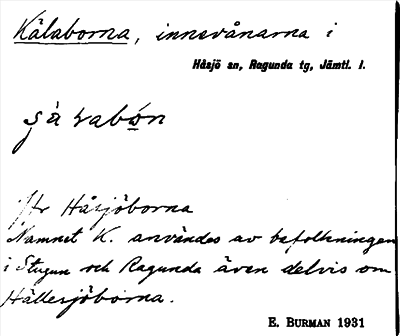 Kälaborna, innevånarna i
Håsjö sn, Ragunda tg, Jämtl. l.
Håsjöborna
Namnet K. användes av befolkningen
i Stugun och Ragunda även delvis om
Hällesjöborna.
E. BURMAN 1931